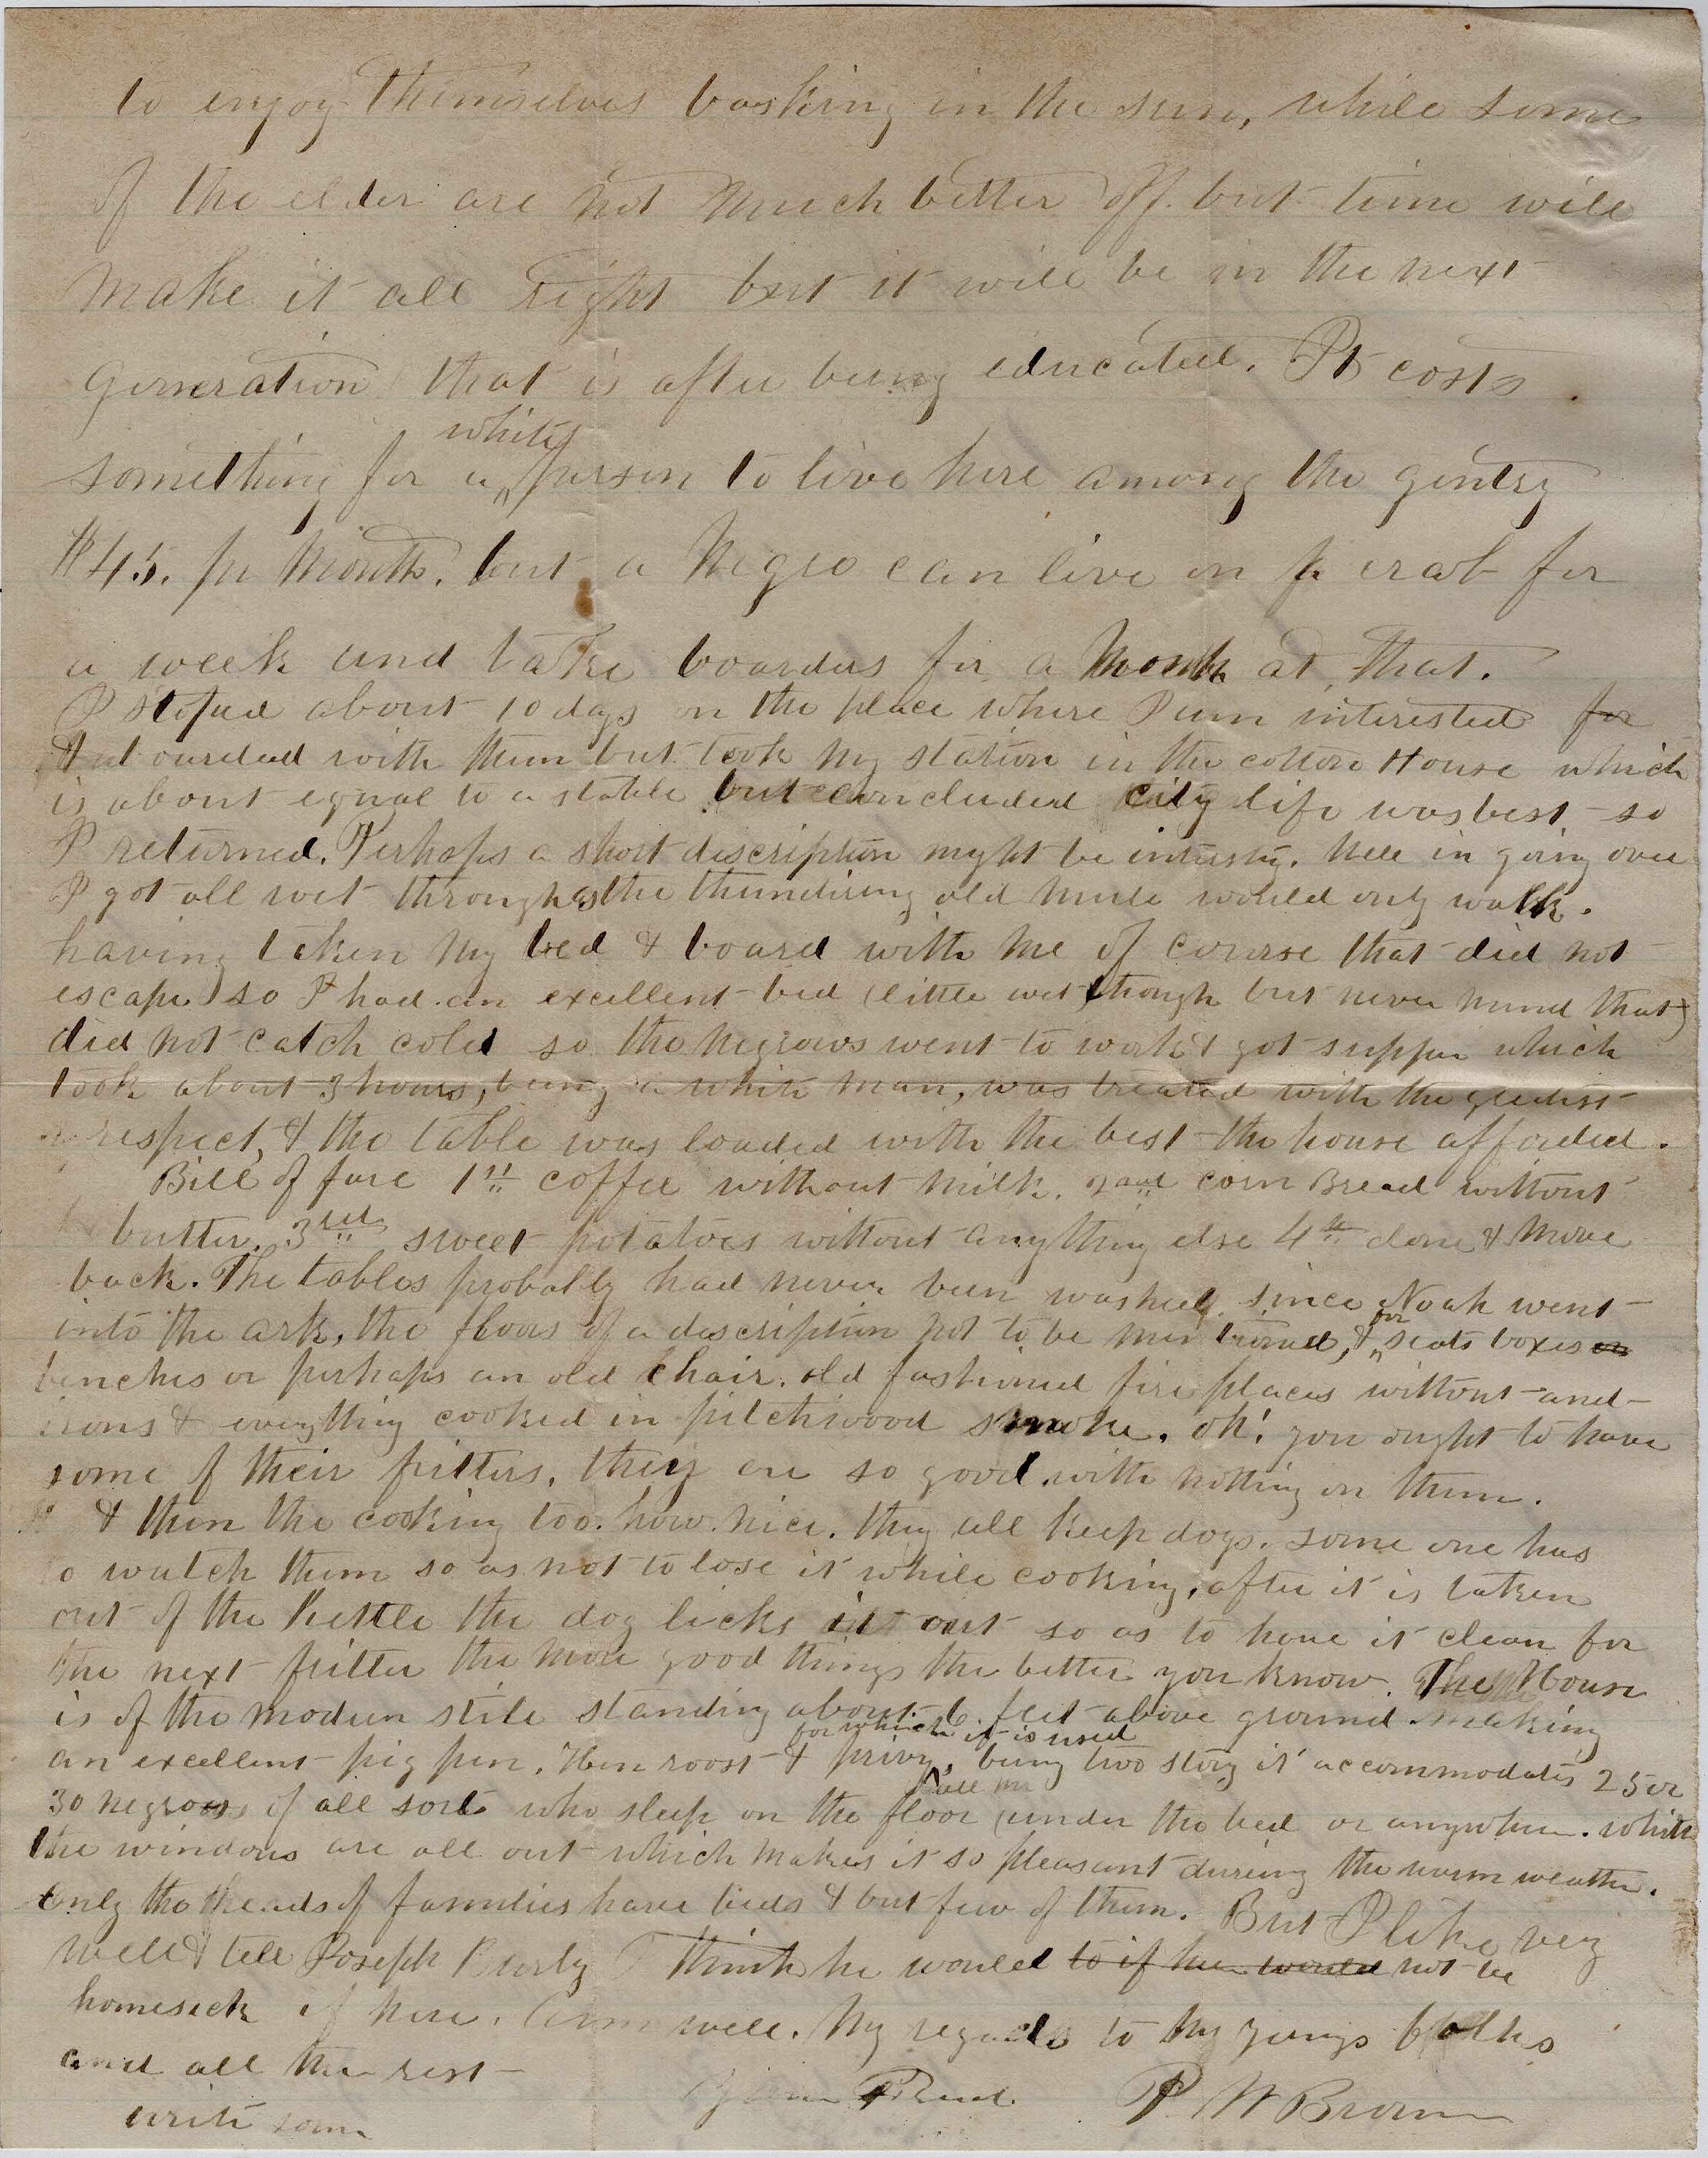 to enjoy themselves basking in the sun, while some
of the elder are not much better off. but time will
make it all right but it will be in the next
generation that is after being educated. It costs
something for a white person to live here among the gentry
$45. per Month. but a Negro can live on a crab for
a week and take boarders for a Month at that.
I stoped about 10 days on the place where I am interested for
with them but took my station in the cotton House which
is about equal to a stable but concluded city life was best so
I returned. Perhaps a short description might be intersty. Well in going over
I got all wet through as the thundering old mule would only walk.
having taken my bed & board with me of course that did not
escape so I had an excellent bed (little wet though but never mind that)
did not catch cold so the negroes went to work & got supper which
took about 3 hours, being a white man, was treated with the greatest
respect, & the table was loaded with the best the house afforded.
Bill of fare 1st coffee without milk. 2nd corn Bread without
butter. 3rd sweet potatoes without anything else 4th done & move
back. The tables probably had never been washed since Noah went
into the ark, the floors of a description not to be mentioned, & for seats boxes or
benches or perhaps an old chair. old fashioned fire places without and-
irons & everything cooked in pitchwood smoke. oh! you ought to have
some of their fritters, they are so good with nothing on them.
& then the cooking too. how nice. they all keep dogs. some one has
to watch them so as not to lose it while cooking, after it is taken
out of the kettle the dog licks it out so as to have it clean for
the next fritter the more good things the better you know. The House
is of the modern stile standing about 6 feet above ground making
an excellent pig pen, Hen roost & privy, for which it is used being two story it accommodates 25 or
30 negroes of all sorts who sleep on the floor (under the bed or anywhere. while
the windows are all out which makes it so pleasant during the warm weather.
Only the heads of families have beds & but few of them. But I like very
well & tell Joseph I think he would to if he would not be
homesick if here. Am well. My regards to the young folks
and all the rest
write soon
Friend. P. W Brown